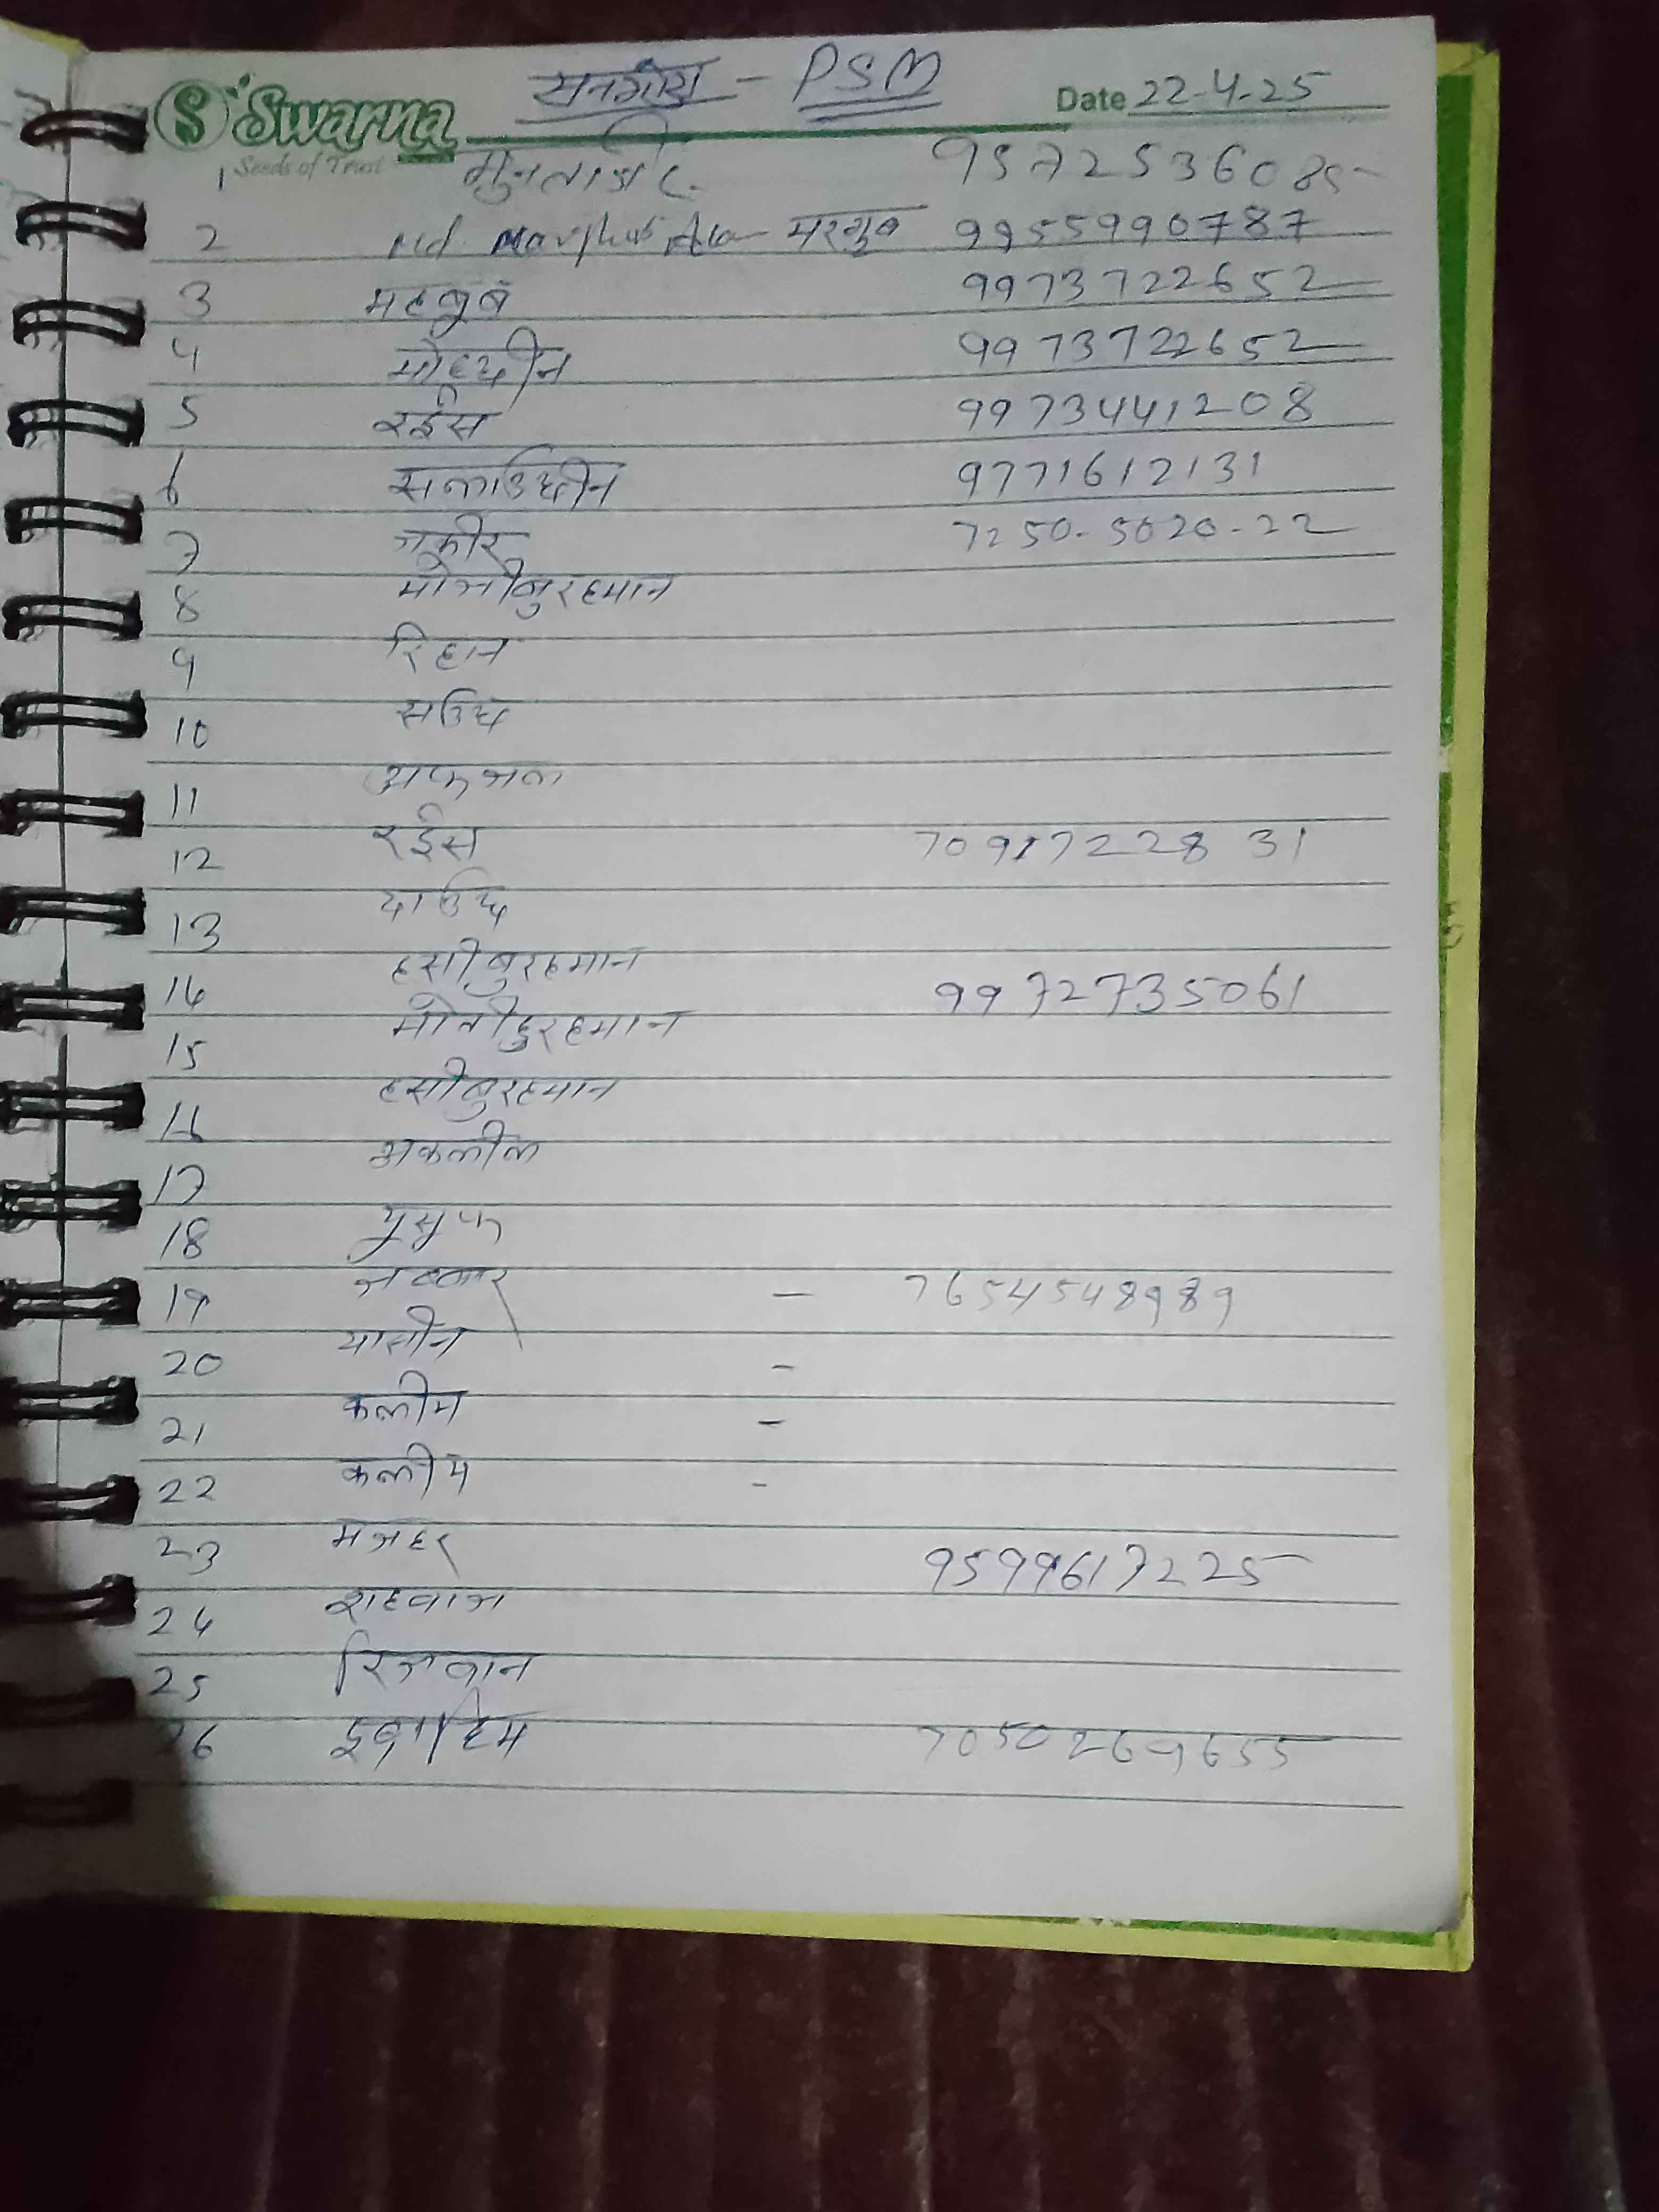 सतगोड़ा - PSM
S Swarna Date 22-4-25
Seeds of Trust
1 मुनताजीर 9572536085
2 Md. Marghub Alam मरगुब 9955990787
3 महबुब 9973722652
4 मोहदीन 9973722652
5 रईस 9973441208
6 सलाउदीन 9771612131
7 जकीर 7250-5020-22
8 मोजीबुरहमान
9 रिहान
10 सउद
11 अफजल
12 रईस 7091722831
13 दाउद
14 हसीबुरहमान 9972735061
15 मोतीहुरहमान
16 हसीबुरहमान
17 अकलील
18 युसुफ
19 जब्बार - 7654548989
20 यासीन -
21 कलीम -
22 कलीम -
23 मजहर 9599617225
24 शहवाज
25 रिजवान
26 इब्राहिम 7050269655